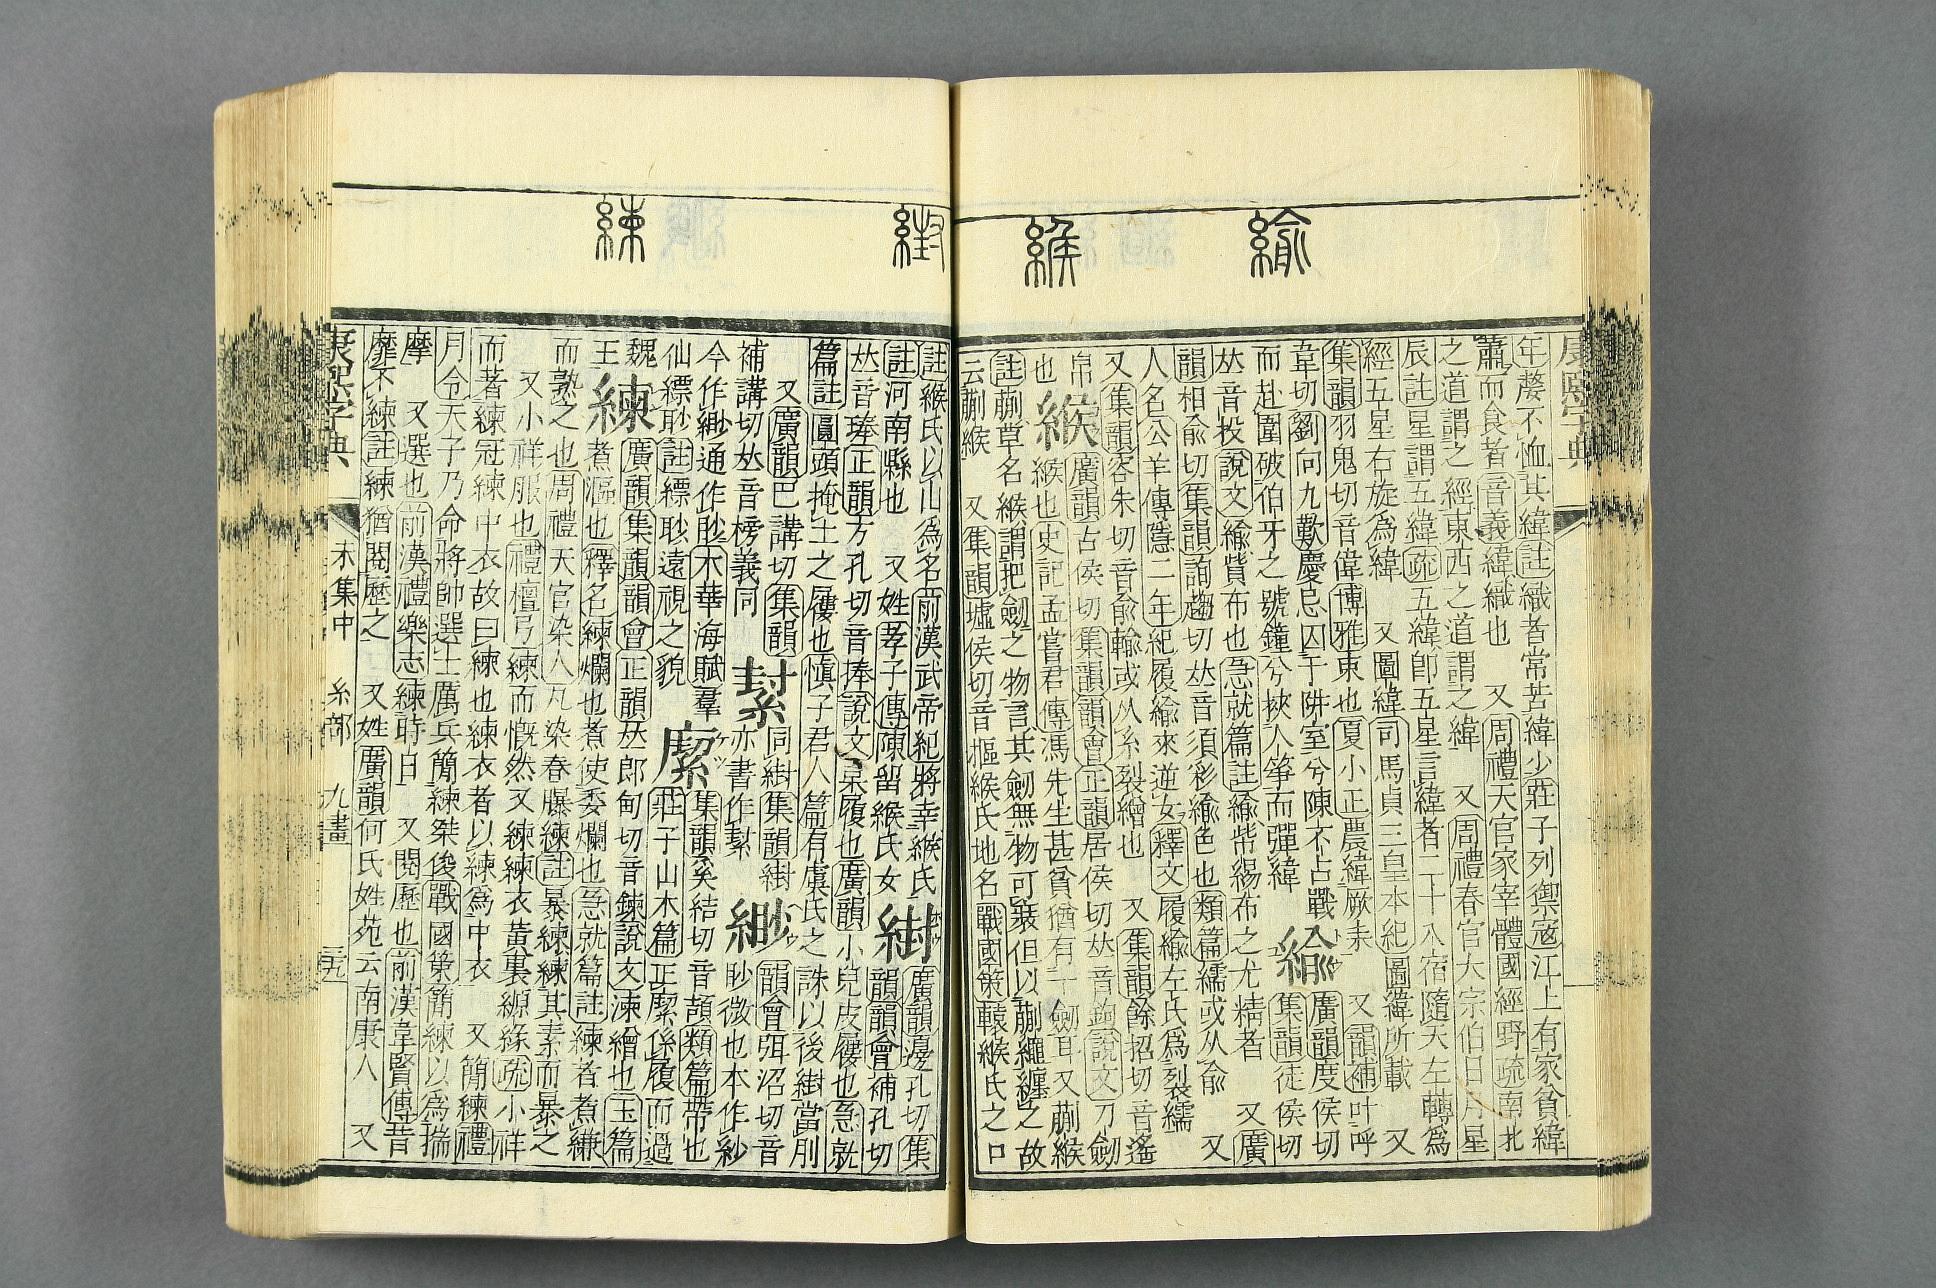 緰
緱
年嫠不恤其緯註織者常苦緯少莊子列禦寇江上有家貧緯
蕭而食者音義緯織也 又周禮天官冢宰體國經野疏南北
之道謂之經東西之道謂之緯 又周禮春官大宗伯日月星
辰註星謂五緯疏五緯卽五星言緯者二十八宿隨天左轉爲
經五星右旋爲緯 又圖緯司馬貞三皇本紀圖緯所載 又
集韻羽鬼切音偉博雅束也夏小正農緯厥耒 又韻補叶呼
韋切劉向九歎慶忌囚于阱室兮陳不占戰
而赴圍破伯牙之號鐘兮挾人箏而彈緯
緰
廣韻度侯切
集韻徒侯切
𠀤音投說文緰貲布也急就篇註緰幣緆布之尤精者 又廣
韻相俞切集韻詢趨切𠀤音須彩緰色也類篇繻或从俞 又
人名公羊傳隱二年紀履緰來逆女釋文履緰左氏爲裂繻
又集韻容朱切音俞輸或从糸裂繒也 又集韻餘招切音遙
帛
也
緱
廣韻古侯切集韻韻會正韻居侯切𠀤音鉤說文刀劒
緱也史記孟嘗君傳馮先生甚貧猶有一劒耳又蒯緱
註蒯草名緱謂把劒之物言其劒無物可裝但以蒯繩纏之故
云蒯緱 又集韻墟侯切音摳緱氏地名戰國策轘緱氏之口
康熙字典
䋽
練
註緱氏以山爲名前漢武帝紀將幸緱氏
註河南縣也 又姓孝子傳陳留緱氏女
䋽
廣韻邊孔切集
韻韻會補孔切
𠀤音琫正韻方孔切音捧說文枲履也廣韻小兒皮屨也急就
篇註圓頭掩上之屨也愼子君人篇有虞氏之誅以後䋽當刖
又廣韻巴講切集韻
補講切𠀤音榜義同
同䋽集韻䋽
亦書作
緲
韻會弭沼切音
眇微也本作紗
今作緲通作眇木華海賦羣
仙縹眇註縹眇遠視之貌
集韻奚結切音頡類篇帶也
莊子山木篇正緳係履而過
魏
王
練
廣韻集韻韻會正韻𠀤郎甸切音鍊說文湅繒也玉篇
煮漚也釋名練爛也煮使委爛也急就篇註練者煮縑
而熟之也周禮天官染人凡染春㬥練註㬥練練其素而㬥之
又小祥服也禮檀弓練而慨然又練練衣黃裏縓緣疏小祥
而著練冠練中衣故曰練也練衣者以練爲中衣 又簡練禮
月令天子乃命將帥選士厲兵簡練桀俊戰國策簡練以爲揣
摩 又選也前漢禮樂志練時日 又閱歷也前漢韋賢傳昔
靡不練註練猶閱歷之 又姓廣韻何氏姓苑云南康人 又
康熙字典 未集中 糸部 九畫 三九